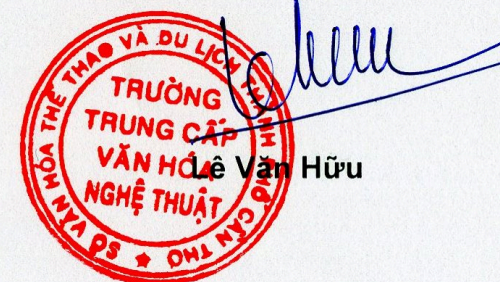 SỞ VĂN HÓA THỂ THAO VÀ DU LỊCH THÀNH PHỐ CẦN THƠ
TRƯỜNG
TRUNG CẤP
VĂN HÓA
NGHỆ THUẬT
Lê Văn Hữu